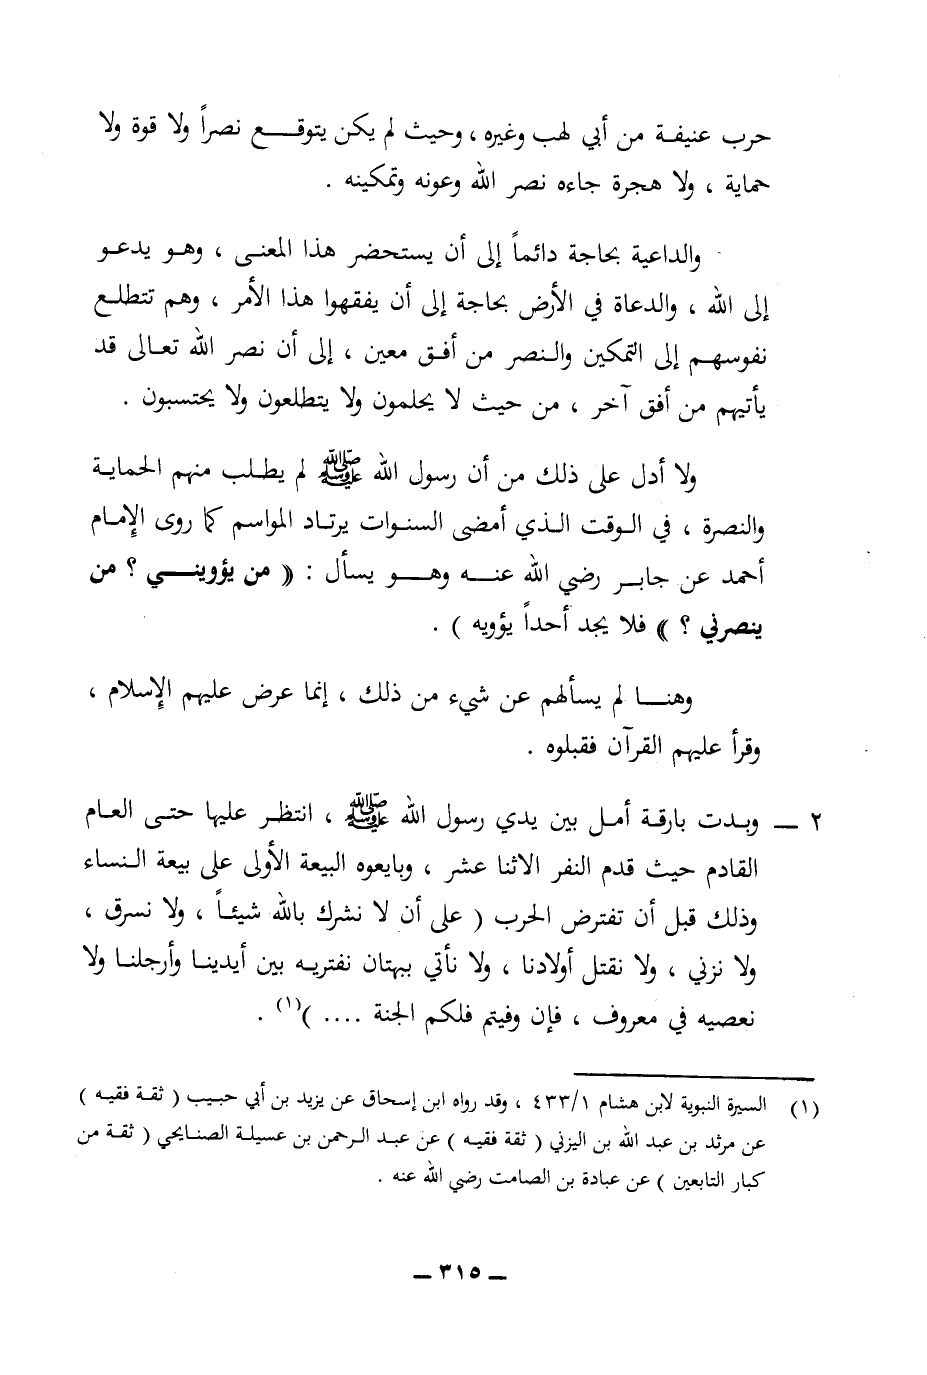 حرب عنيفة من أبي لهب وغيره ، وحيث لم يكن يتوقع نصراً ولا قوة ولا
حماية ، ولا هجرة جاءه نصر الله وعونه وتمكينه .
والداعية بحاجة دائماً إلى أن يستحضر هذا المعنى ، وهو يدعو
إلى الله ، والدعاة في الأرض بحاجة إلى أن يفقهوا هذا الأمر ، وهم تتطلع
نفوسهم إلى التمكين والنصر من أفق معين ، إلى أن نصر الله تعالى قد
يأتيهم من أفق آخر ، من حيث لا يحلمون ولا يتطلعون ولا يحتسبون .
ولا أدل على ذلك من أن رسول الله ﷺ لم يطلب منهم الحماية
والنصرة ، في الوقت الذي أمضى السنوات يرتاد المواسم كما روى الإمام
أحمد عن جابر رضي الله عنه وهو يسأل : (( من يؤويني ؟ من
ينصرني ؟ )) فلا يجد أحداً يؤويه ) .
وهنا لم يسألهم عن شيء من ذلك ، إنما عرض عليهم الإسلام ،
وقرأ عليهم القرآن فقبلوه .
٢ ــ وبدت بارقة أمل بين يدي رسول الله ﷺ ، انتظر عليها حتى العام
القادم حيث قدم النفر الاثنا عشر ، وبايعوه البيعة الأولى على بيعة النساء
وذلك قبل أن تفترض الحرب ( على أن لا نشرك بالله شيئاً ، ولا نسرق ،
ولا نزني ، ولا نقتل أولادنا ، ولا نأتي ببهتان نفتريه بين أيدينا وأرجلنا ولا
نعصيه في معروف ، فإن وفيتم فلكم الجنة .... )(١) .
(١) السيرة النبوية لابن هشام ٤٣٣/١ ، وقد رواه ابن إسحاق عن يزيد بن أبي حبيب ( ثقة فقيه )
عن مرثد بن عبد الله بن اليزني ( ثقة فقيه ) عن عبد الرحمن بن عسيلة الصنابحي ( ثقة من
كبار التابعين ) عن عبادة بن الصامت رضي الله عنه .
ــ ٣١٥ ــ